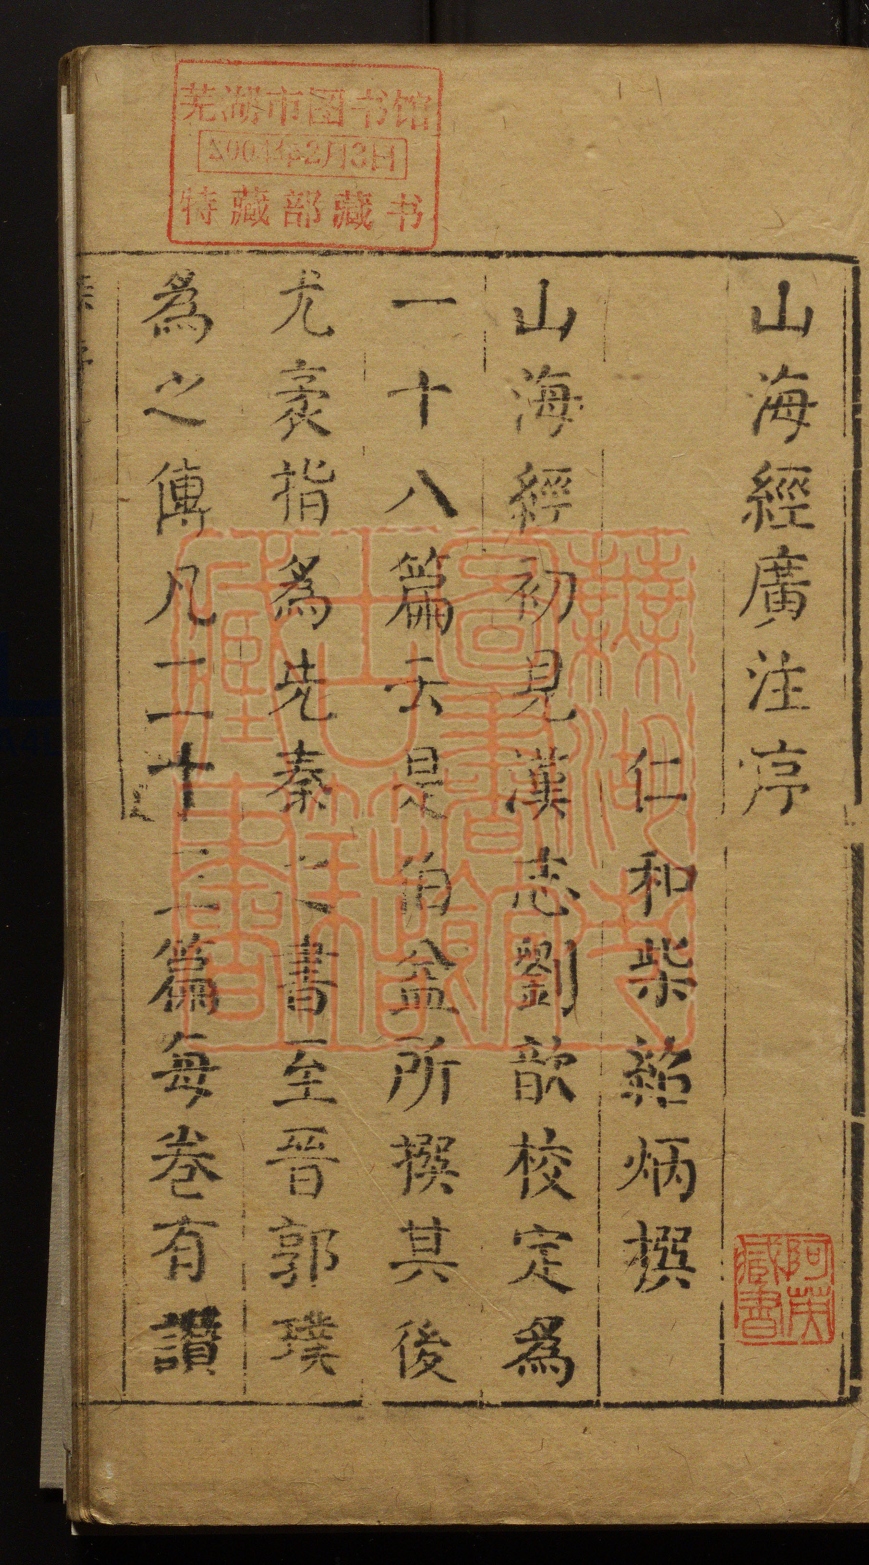 山海經廣注序
仁和柴紹炳撰
山海經初見漢志劉歆校定為
一十八篇云是伯益所撰其後
尤袤指為先秦之書至晉郭璞
為之傳凡二十三篇每卷有讚
芜湖市图书馆
2004年2月3日
特藏部藏书
蕪湖市
圖書館
古籍
藏書
阿英
藏書